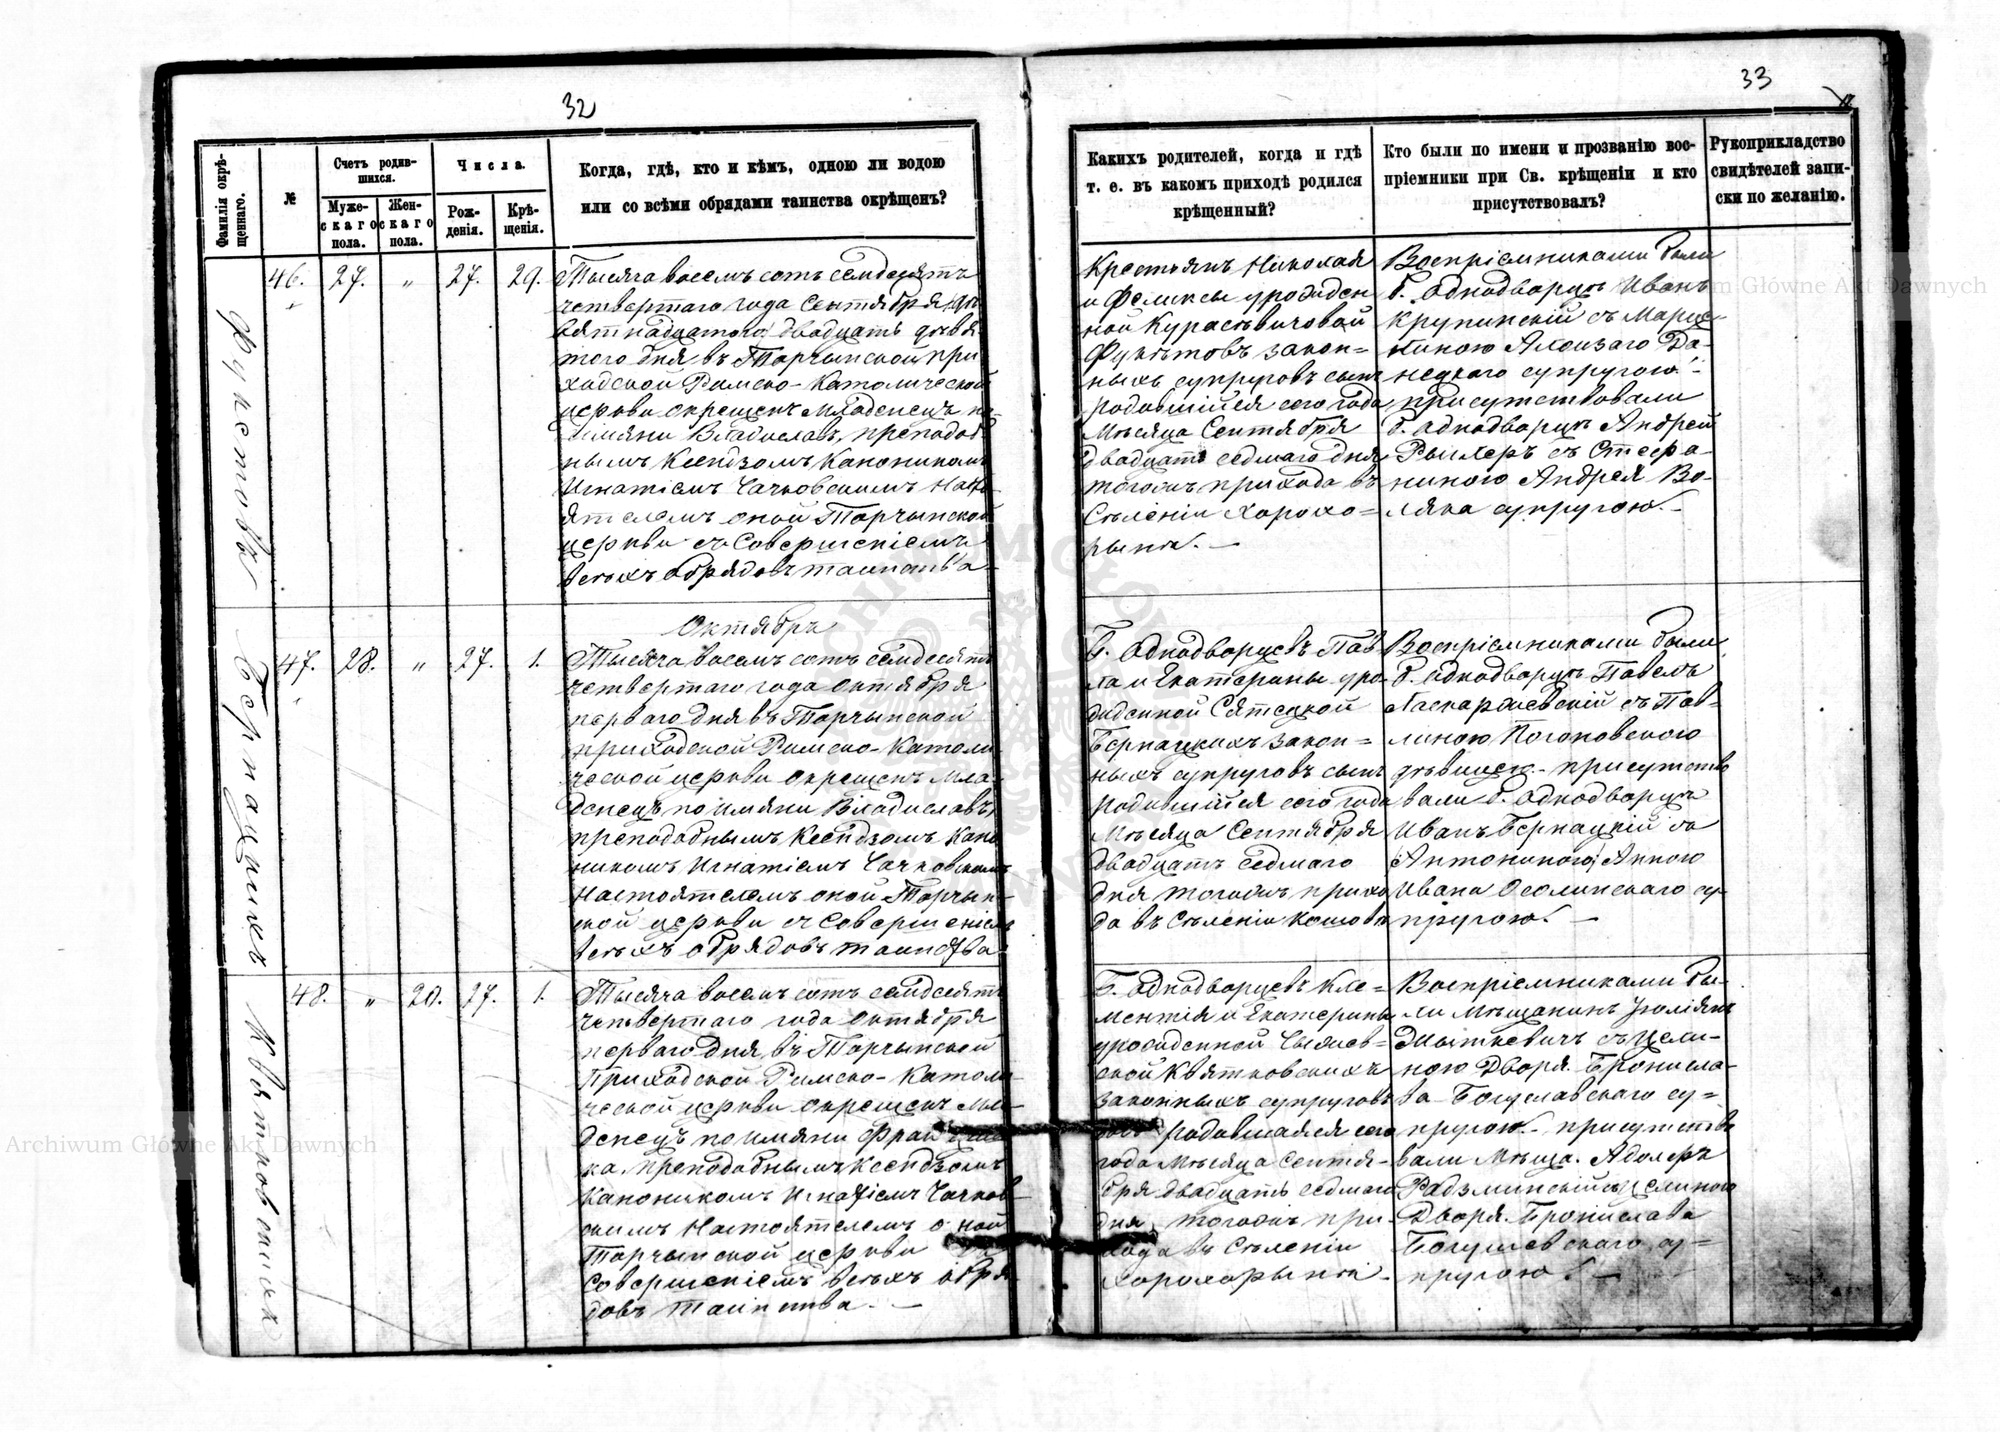 32
Фамилія окрѣ-
щеннаго.
№
Счетъ родив-
шихся.
Муже-
скаго
пола.
Жен-
скаго
пола.
Числа.
Рож-
денія.
Крѣ-
щенія.
Когда, гдѣ, кто и кѣмъ, одною ли водою
или со всѣми обрядами таинства окрѣщенъ?
46.
27.
"
27.
29.
Тысяча восемъ сотъ семдесятъ
четвертаго года Сентября
двадцать девя
таго дня въ Торчынской при
ходской Римско-Католической
церкви окрещенъ младенецъ по
имяни Владиславъ, преподоб
нымъ Ксендзомъ Каноникомъ
Игнатіемъ Чачковскимъ Насто
ятелемъ оной Торчынской
церкви съ Совершеніемъ
всѣхъ обрядовъ таинства.
Октябрь
Бернацкихъ
47.
28.
"
27.
1.
Тысяча восемъ сотъ семдесятъ
четвертаго года Октября
перваго дня въ Торчынской
приходской Римско-Католи
ческой церкви окрещенъ мла
денецъ по имяни Владиславъ,
преподобнымъ Ксендзомъ Кано
никомъ Игнатіемъ Чачковскимъ
Настоятелемъ оной Торчын
ской церкви съ Совершеніемъ
всѣхъ обрядовъ таинства.
Квятковскихъ
48.
"
20.
27.
1.
Тысяча восемъ сотъ семдесятъ
четвертаго года Октября
перваго дня въ Торчынской
Приходской Римско-Католи
ческой церкви окрещенъ мла
денецъ по имяни Франциш
ка преподобнымъ Ксендзомъ
Каноникомъ Игнатіемъ Чачков
скимъ Настоятелемъ оной
Торчынской церкви съ
Совершеніемъ всѣхъ обря
довъ таинства. —
33
Какихъ родителей, когда и гдѣ
т. е. въ какомъ приходѣ родился
крѣщенный?
Кто были по имени и прозванію вос-
пріемники при Св. крѣщеніи и кто
присутствовалъ?
Рукоприкладство
свидѣтелей запи-
ски по желанію.
Крестьянъ Николая
и Феликсы урожден
ной Курасѣвичовой
закон=
ныхъ супруговъ сынъ
родившійся сего года
Мѣсяца Сентября
двадцать седмаго дня
тогожъ прихода въ
Сѣленіи Хорохо=
рынѣ. —
Воспріемниками были
б. однодворцъ Иванъ
Крупинскій съ Марце-
линою Алоизаго
супругою.
присутствовали
б. однодворцъ Андрей
съ Стефа-
ниною Андрея Во-
ляка супругою. —
Б. однодворцевъ Пав
ла и Екатерины уро
жденной Сятецкой
Бернацкихъ закон=
ныхъ супруговъ сынъ
родившійся сего года
Мѣсяца Сентября
двадцать седмаго
дня тогожъ прихо
да въ Сѣленіи
Воспріемниками были
б. однодворцъ Павелъ
съ Пав-
линою
дѣвицею. присутство
вали б. однодворцъ
Иванъ Бернацкій съ
Антониною, Анною
Ивана Осолинскаго су
пругою. —
Б. однодворцевъ Кле=
ментія и Екатерины
урожденной
Квятковскихъ
законныхъ супруговъ
дочь родившаяся сего
года Мѣсяца Сентя-
бря двадцать седмаго
дня, тогожъ при-
хода въ Сѣленіи
Хорохорынѣ.
Воспріемниками бы-
ли Мѣщанинъ Юліянъ
съ Цели-
ною Дворя. Бронисла-
ва Богуславскаго су=
пругою. присутство
вали Мѣща. Адольфъ
Радзминскій съ Целиною
Дворя. Бронислава
су=
пругою. —
Archiwum Główne Akt Dawnych
Archiwum Główne Akt Dawnych